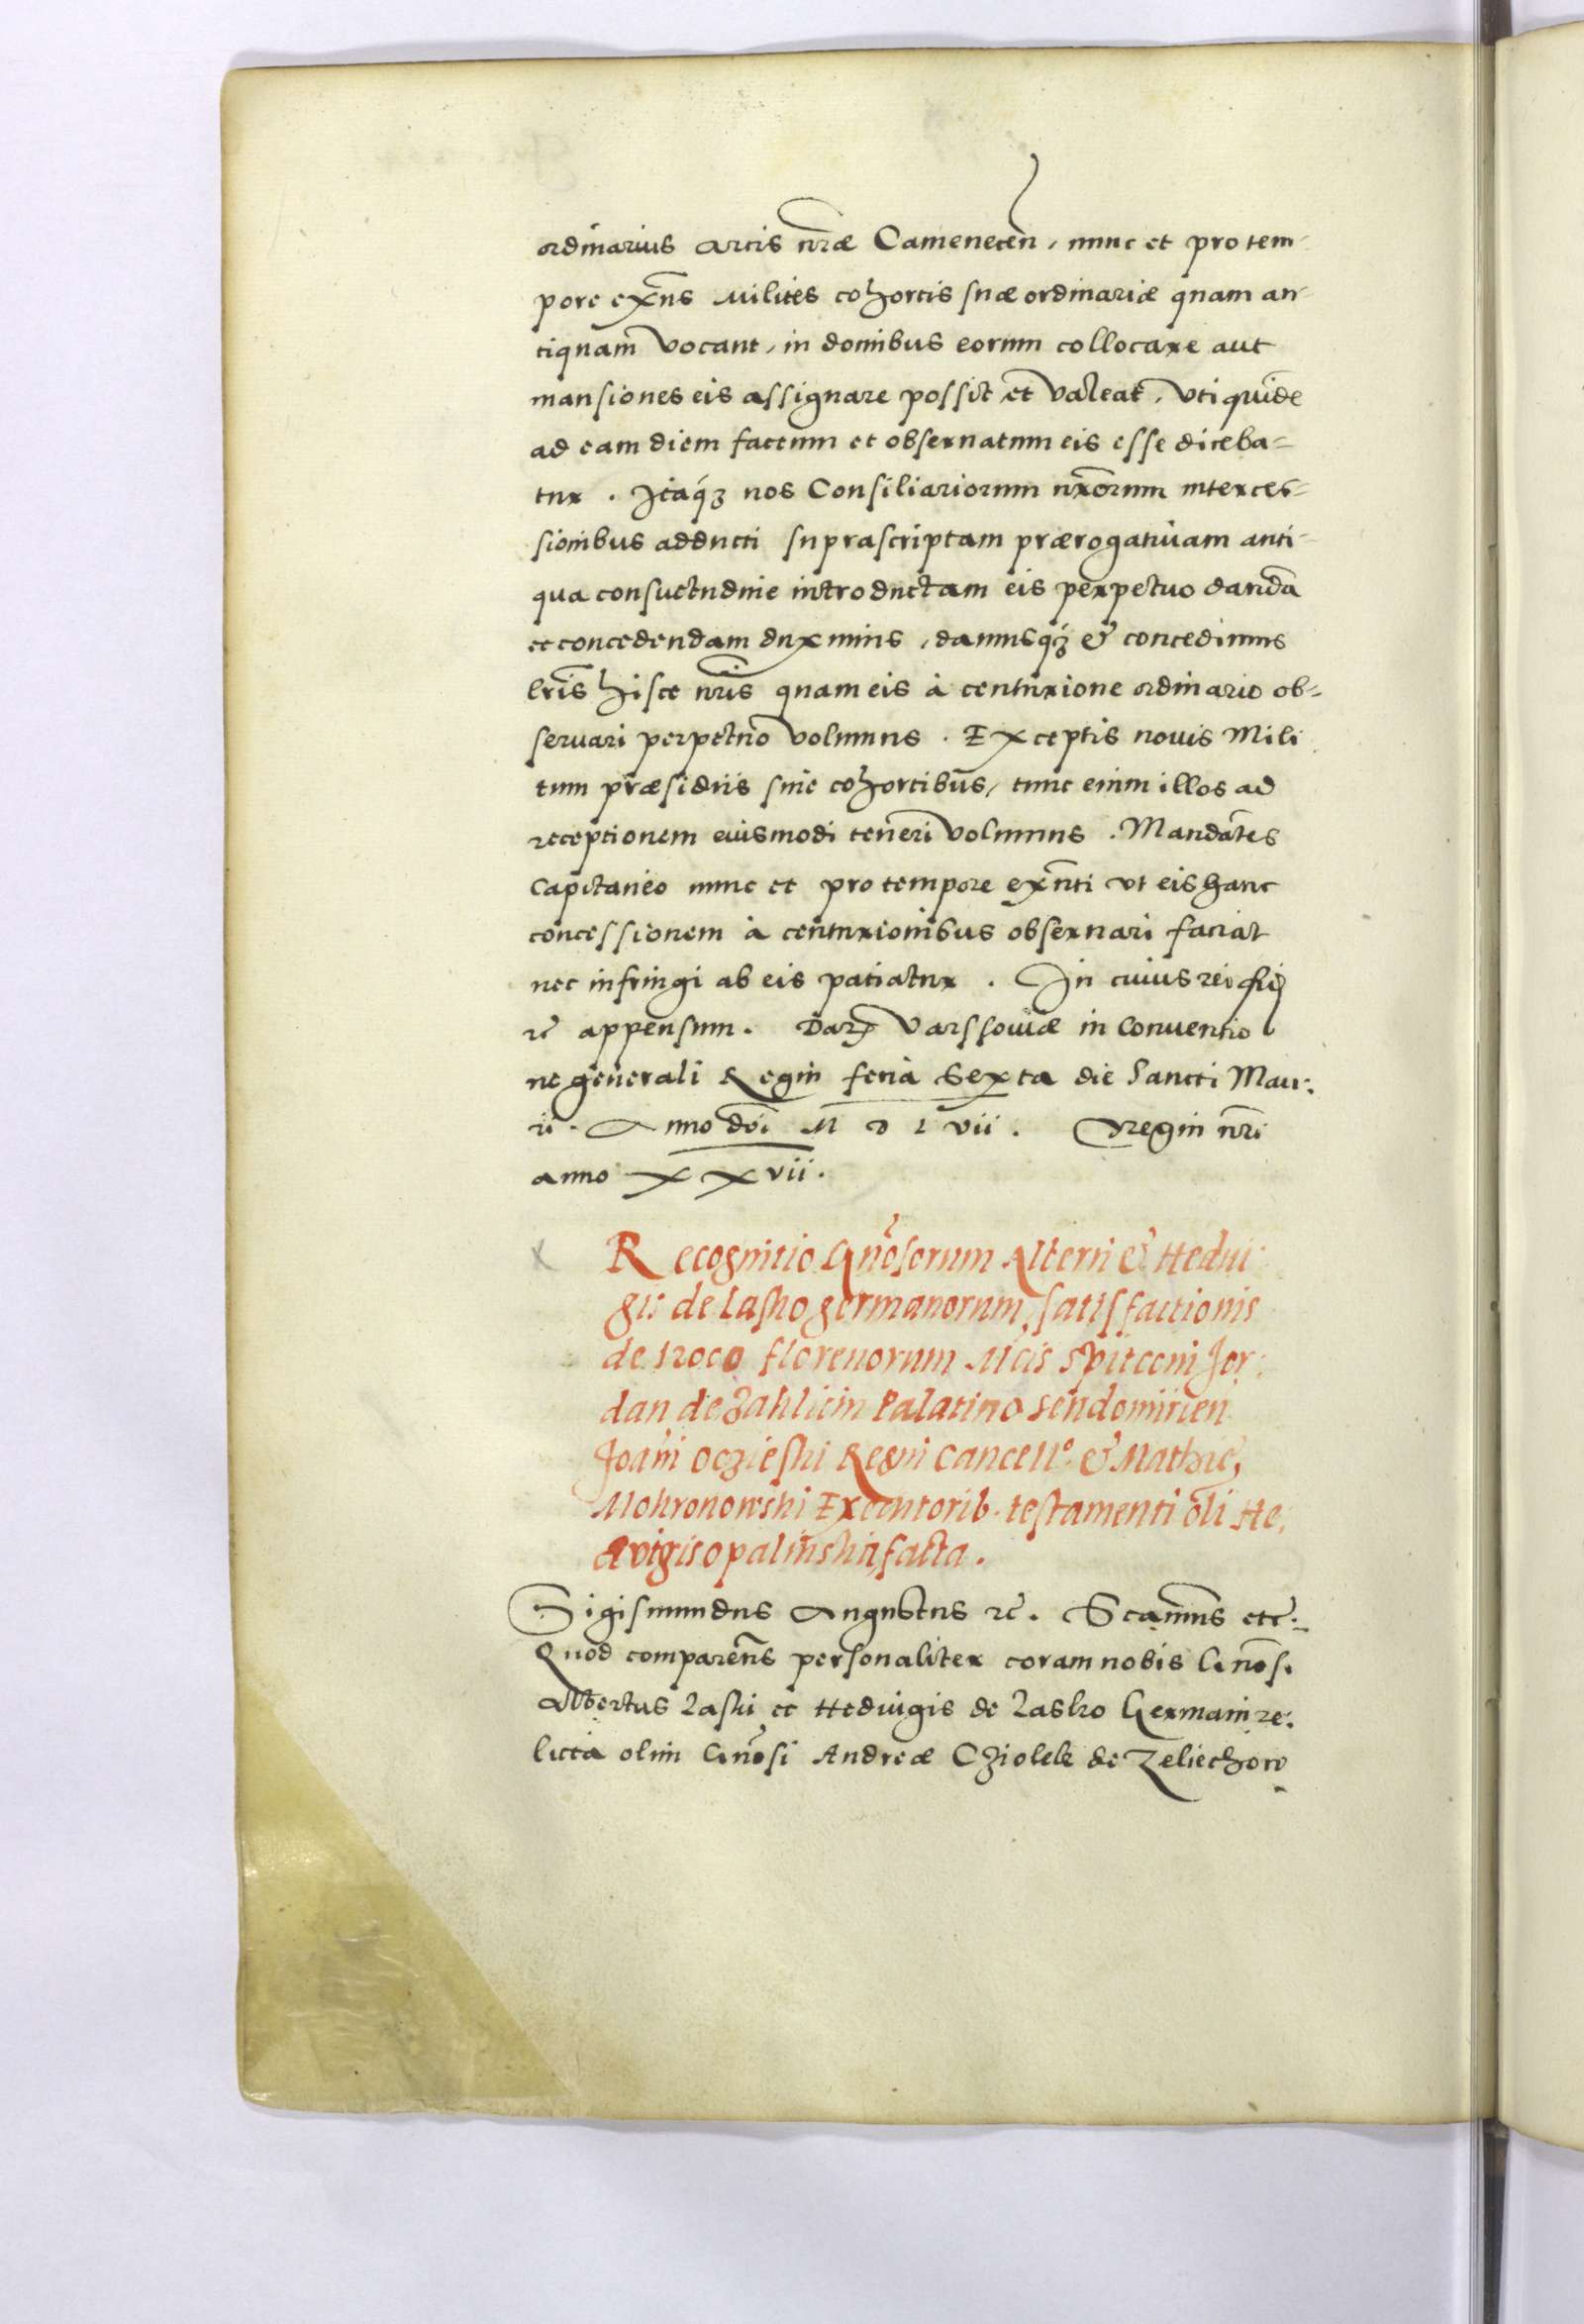 ordinarius arcis nr̃æ Camenecen̄, nunc et pro tem-
pore exn̄s milites cohortis suæ ordinariæ quam an-
tiquam vocant, in domibus eorum collocare aut
mansiones eis assignare possit et valeat, vti quidē
ad eam diem factum et obseruatum eis esse diceba-
tur. Itaq́ꝫ nos Consiliariorum nr̃orum interces-
sionibus adducti suprascriptam prærogatiuam anti-
qua consuetudine introductam eis perpetuo dandā
et concedendam duximus, damusq́ꝫ & concedimus
lr̃is hisce nr̃is quam eis à centurione ordinario ob-
seruari perpetuo volumus. Exceptis nouis Mili
tum præsidiis siue cohortibus, tunc enim illos ad
receptionem eiusmodi teneri volumus. Mandātes
Capitaneo nunc et pro tempore exn̄ti vt eis hanc
concessionem à centurionibus obseruari faciat
nec infringi ab eis patiatur. In cuius rei fid
rc̄ appensum. Dat Varssouiæ in Conuentio
ne generali Regni feria Sexta die Sancti Mau:
ri. Anno dn̄i M D L vii. Regni nr̃i
anno XXvii.
Recognitio Gn̄osorum Alberti & Hedui
gis de Lasko germanorum, satisfactionis
de 12000 florenorum M̄cis Spitconi Jor:
dan de Zakliczin Palatino Sendomirien
Joan̄i Oczieski Regni Cancell°. & Mathię
Mokronowski Executorib. testamenti oli He,
duigis opalinskii, facta.
Sigismundus Augustus rc̄. Scām̄s etc̄.
Quod comparen̄s personaliter coram nobis Gn̄osi
Albertus Laski et Heduigis de Lasko Germani re:
licta olim Gn̄osi Andreæ Cziolek de Zeliechow